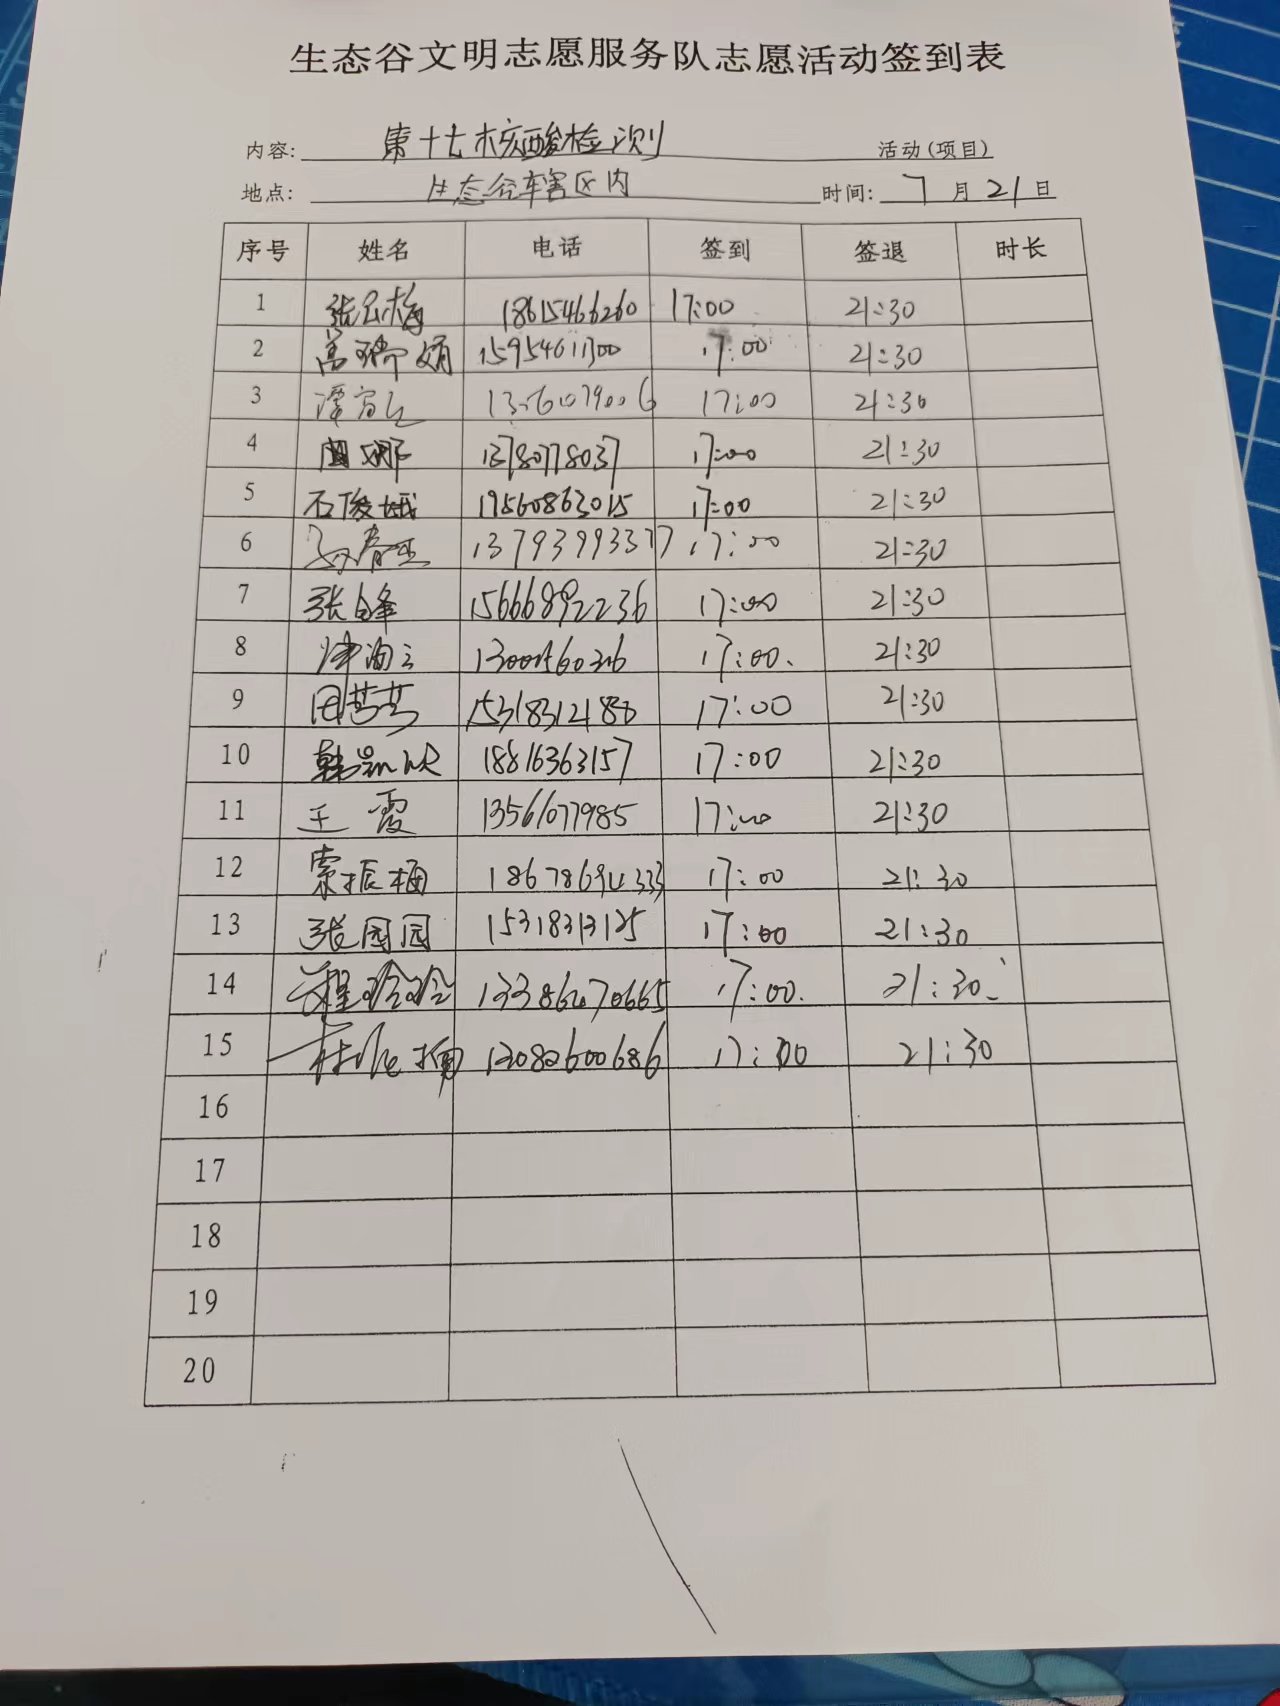 生态谷文明志愿服务队志愿活动签到表
内容: 第十七核酸检测 活动(项目)
地点: 生态谷辖区内 时间: 7月21日
序号 姓名 电话 签到 签退 时长
1 18615466260 17:00 21:30
2 高瑞娟 15954611300 17:00 21:30
3 17:00 21:30
4 13780778037 17:00 21:30
5 石俊娥 19560863015 17:00 21:30
6 13793993377 17:00 21:30
7 张峰 15666892236 17:00 21:30
8 17:00. 21:30
9 田苦苦 15318312180 17:00 21:30
10 18816363157 17:00 21:30
11 王霞 13561077985 17:00 21:30
12 索振梅 18678694333 17:00 21:30
13 张园园 15318313125 17:00 21:30
14 程玲玲 17:00. 21:30
15 13082600686 17:00 21:30
16
17
18
19
20